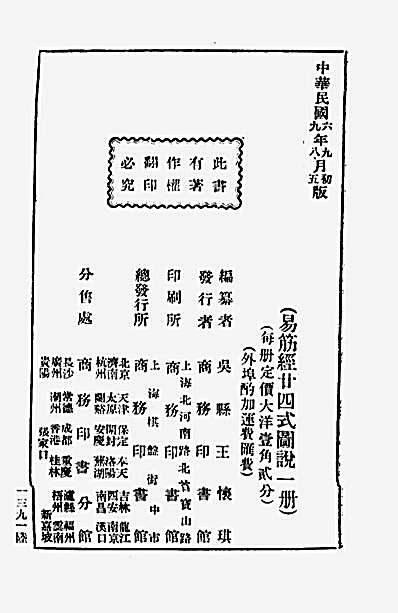 中華民國六年九月初版
九年八月五版
(易筋經廿四式圖說一册)
(每册定價大洋壹角貳分)
(外埠酌加運費匯費)
此書
有著
作權
翻印
必究
編纂者 吳縣王懷琪
發行者 商務印書館
印刷所 上海河南路北首寶山路
商務印書館
總發行所 上海棋盤街中市
商務印書館
分售處
北京 天津 保定 奉天 吉林 龍江
濟南 太原 開封 洛陽 西安 南京
杭州 蘭谿 安慶 蕪湖 南昌 漢口
商務印書分館
長沙 常德 成都 重慶 瀘縣 福州
廣州 潮州 香港 桂林 梧州 雲南
貴陽 張家口 新嘉坡
一三九一陸